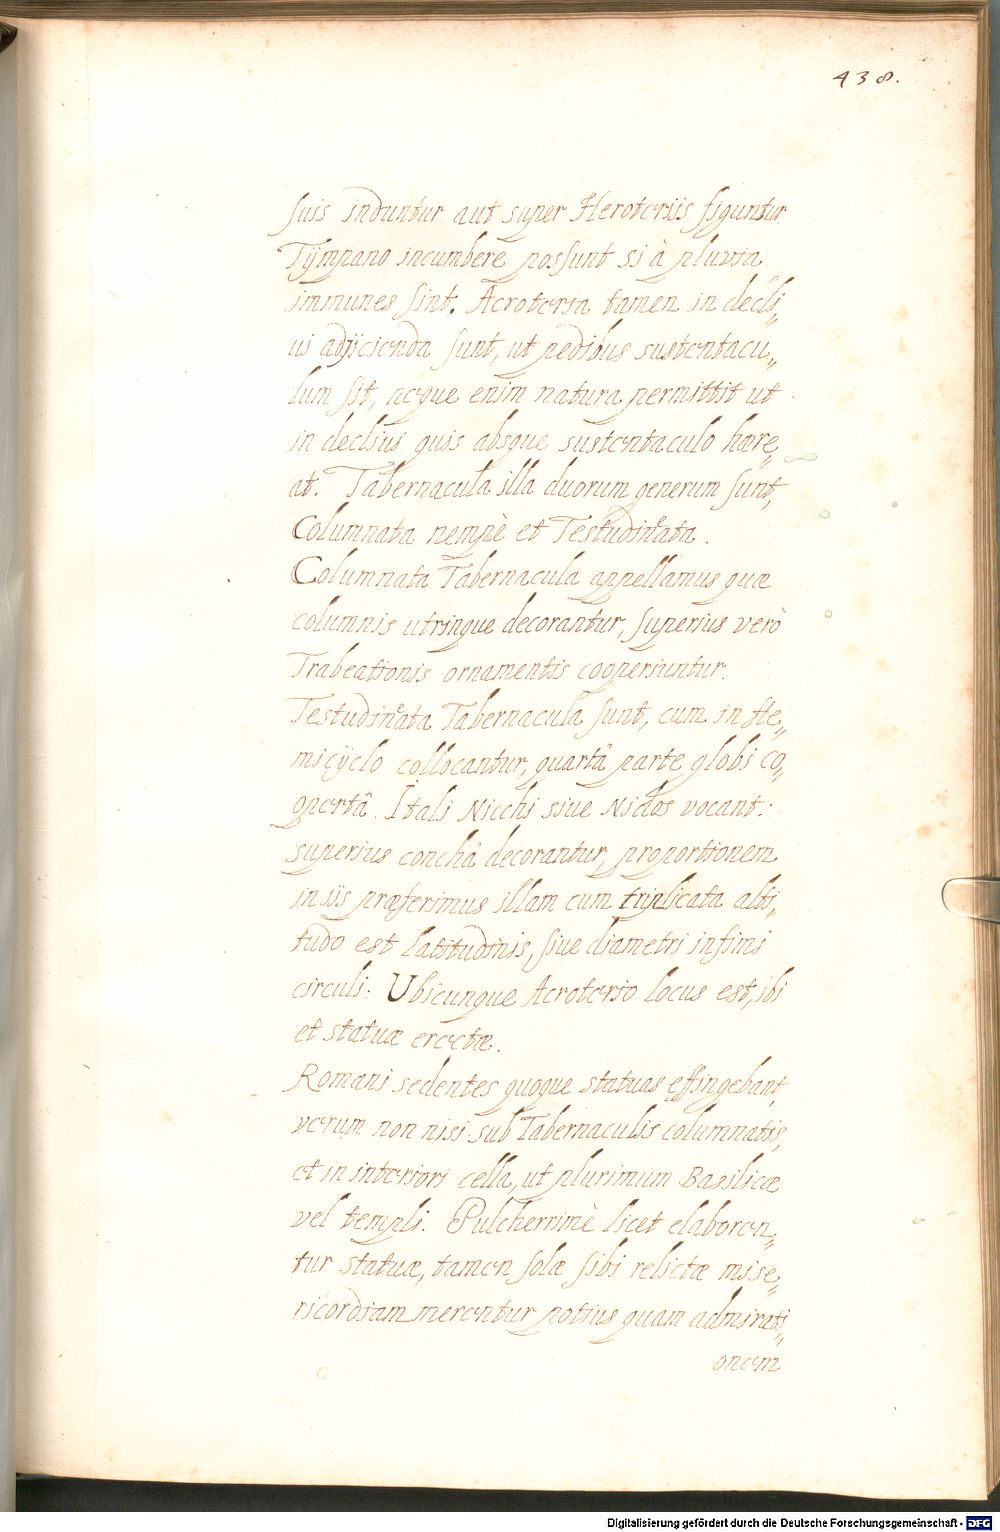 438.
suis induntur aut super Heroteriis figuntur
Tÿmpano incumbere possunt si à pluvia
immunes sint. Acroteria tamen in decli„
ui adijcienda sunt, ut pedibus sustentacu„
lum sit, neque enim natura permittit ut
in decliui quis absque sustentaculo hære„
at. Tabernacula illa duorum generum sunt,
Columnata nempè et Testudinata.
Columnata Tabernacula appellamus quæ
columnis utrinque decorantur, superius verò
Trabeationis ornamentis cooperiuntur.
Testudinata Tabernacula sunt, cum in He„
micÿclo collocantur, quartâ parte globi co„
opertâ. Itali Nicchi siue Nidos vocant:
superius conchâ decorantur, proportionem
in iis præferimus illam cum triplicata alti„
tudo est latitudinis, siue diametri infimi
circuli: Ubicunque Acroterio locus est, ibi
et statuæ erectæ.
Romani sedentes quoque statuas effingebant,
verum non nisi sub Tabernaculis columnatis,
et in interiori cella, ut plurimum Basilicæ
vel templi. Pulcherrimè licet elaboren„
tur statuæ, tamen solæ sibi relictæ mise„
ricordiam merentur potius quam admirati„
onem
Digitalisierung gefördert durch die Deutsche Forschungsgemeinschaft - DFG